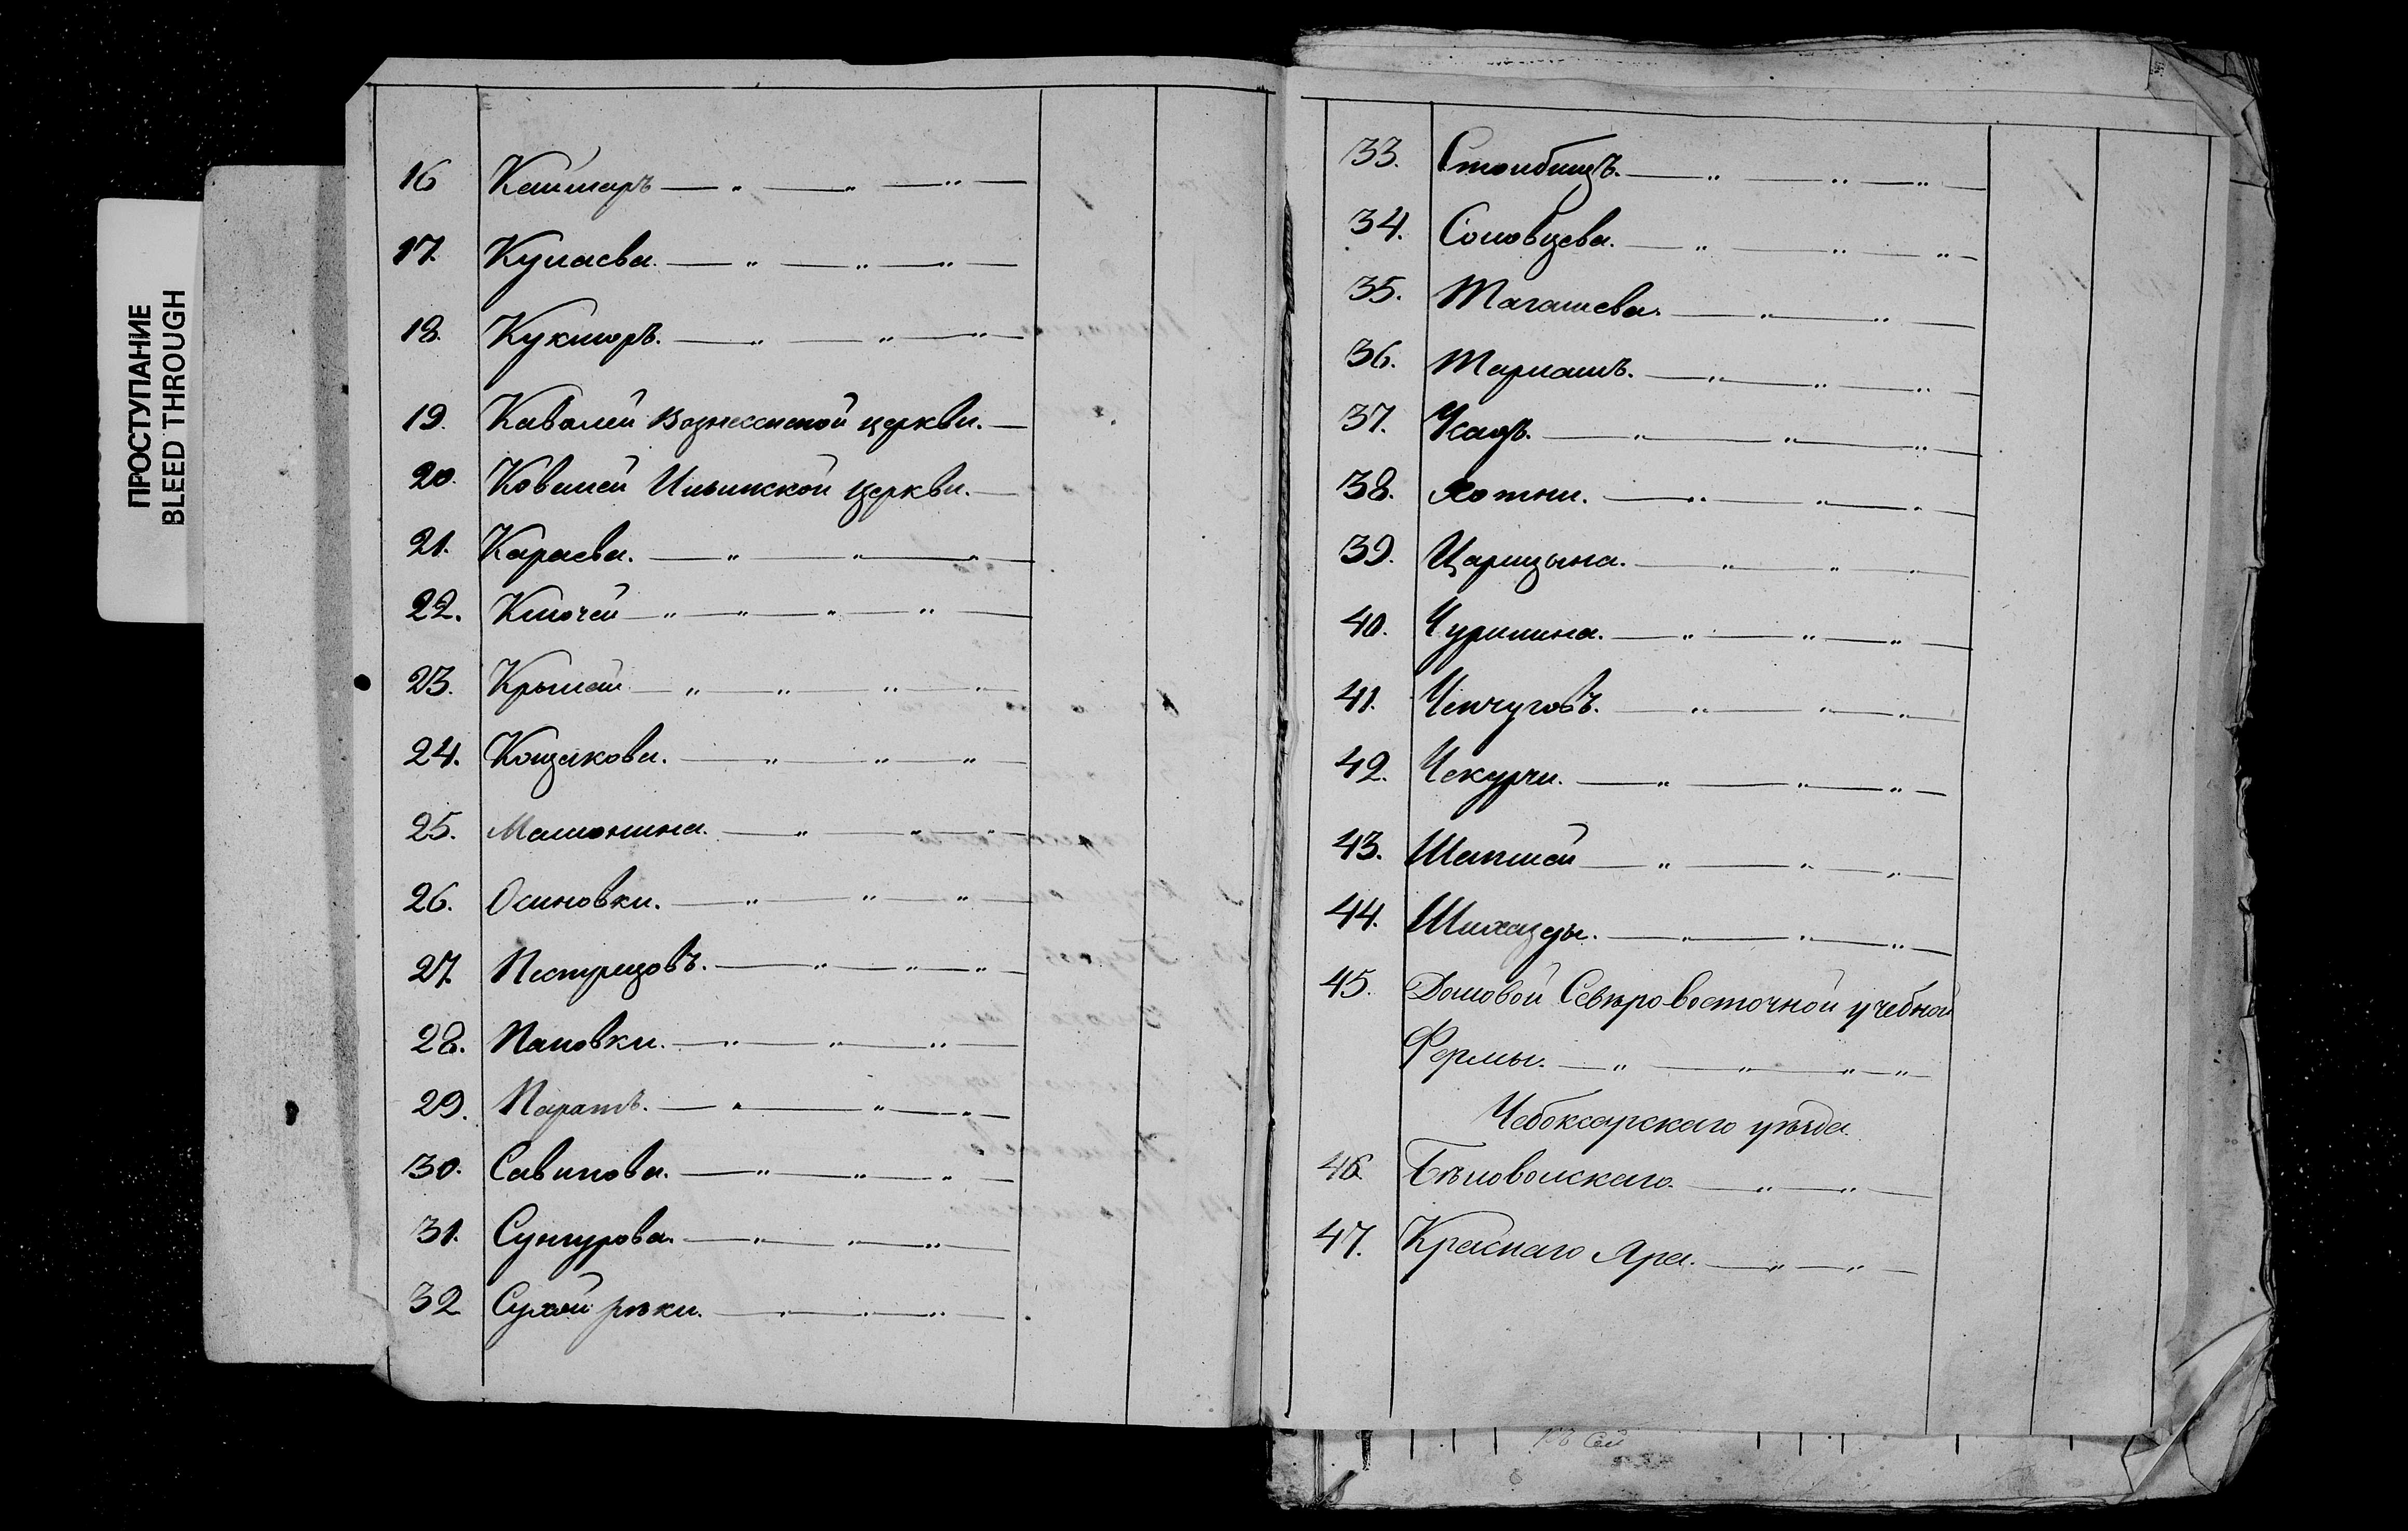 ПРОСТУПАНИЕ
BLEED THROUGH
16 Каймаръ — „ — „ — „ —
17. Кулаева. — „ — „ — „ —
18. Кукморъ. — „ — „ — „ —
19. Кавалей Вознесенской церкви. —
20. Ковалей Ильинской церкви. —
21. Караева. — „ — „ — „ —
22. Ключей — „ — „ — „ — „ —
23. Крылай — „ — „ — „ — „ —
24. Кощакова. — „ — „ — „ —
25. Мамонина. — „ — „ — „ —
26. Осиновки. — „ — „ — „ —
27. Пестрецовъ. — „ — „ — „ —
28. Пановки. — „ — „ — „ —
29. Паратъ. — „ — „ — „ —
30. Савинова. — „ — „ — „ —
31. Сунгурова. — „ — „ — „ —
32 Сухой рѣки. — „ — „ — „ —
33. Столбищъ. — „ — „ — „ —
34. Соловцева. — „ — „ — „ —
35. Тагашева. — „ — „ —
36. Тарлашъ. — „ — „ — „ —
37. Усадъ. — „ — „ — „
38. Хотни. — „ — „ — „ —
39. Царицына. — „ — „ — „ —
40. Чурилина. — „ — „ — „ —
41. Чепчуговъ. — „ — „ — „ —
42. Чекурчи. — „ — „ — „ —
43. Шапшей — „ — „ — „ —
44. Шихазды. — „ — „ — „ —
45. Домовой Сѣверовосточной учебной
Фермы. — „ — „ — „ — „ —
Чебоксарскаго уѣзда
46. Бѣловолжскаго. — „ — „ —
47. Краснаго Яра. — „ — „ —